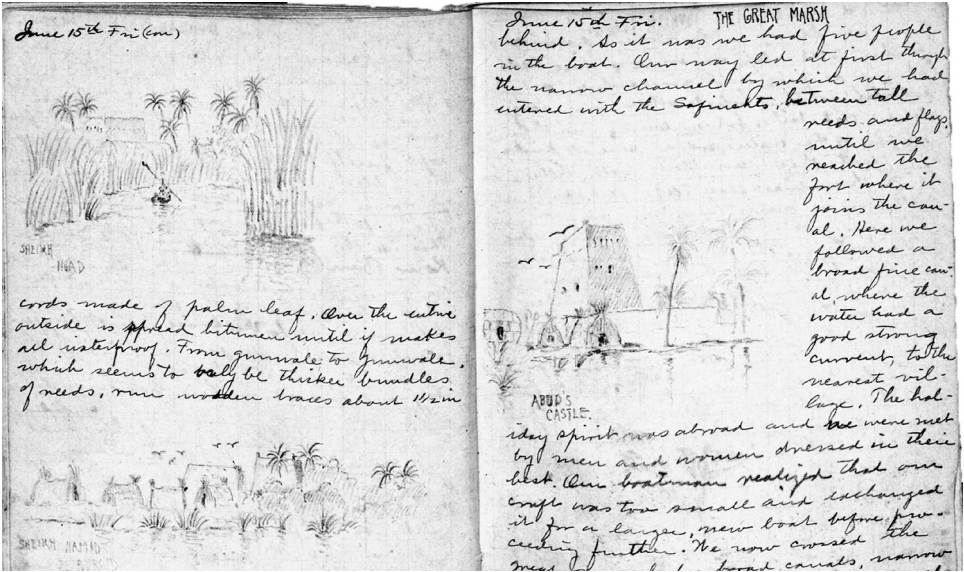 June 15th Fri (con)
SHEIKH
INAD
cords made of palm leaf. Over the entire
outside is spread bitumen until it makes
all waterproof. From gunwale to gunwale,
which seems to only be thicker bundles
of reeds, run wooden braces about 1 1/2 in
SHEIKH HAMID
June 15th Fri.
THE GREAT MARSH
behind. As it was we had five people
in the boat. Our way led at first through
the narrow channel by which we had
entered with the Safinents, between tall
reeds and flags,
until we
reached the
fort where it
joins the can-
al. Here we
followed a
broad fine can-
al where the
water had a
good strong
current, to the
nearest vil-
lage. The hol-
ABUD'S
CASTLE.
iday spirit was abroad and we were met
by men and women dressed in their
best. Our boatman realized that our
craft was too small and exchanged
it for a larger, new boat before pro-
ceeding further. We now crossed the
great broad canals, narrow